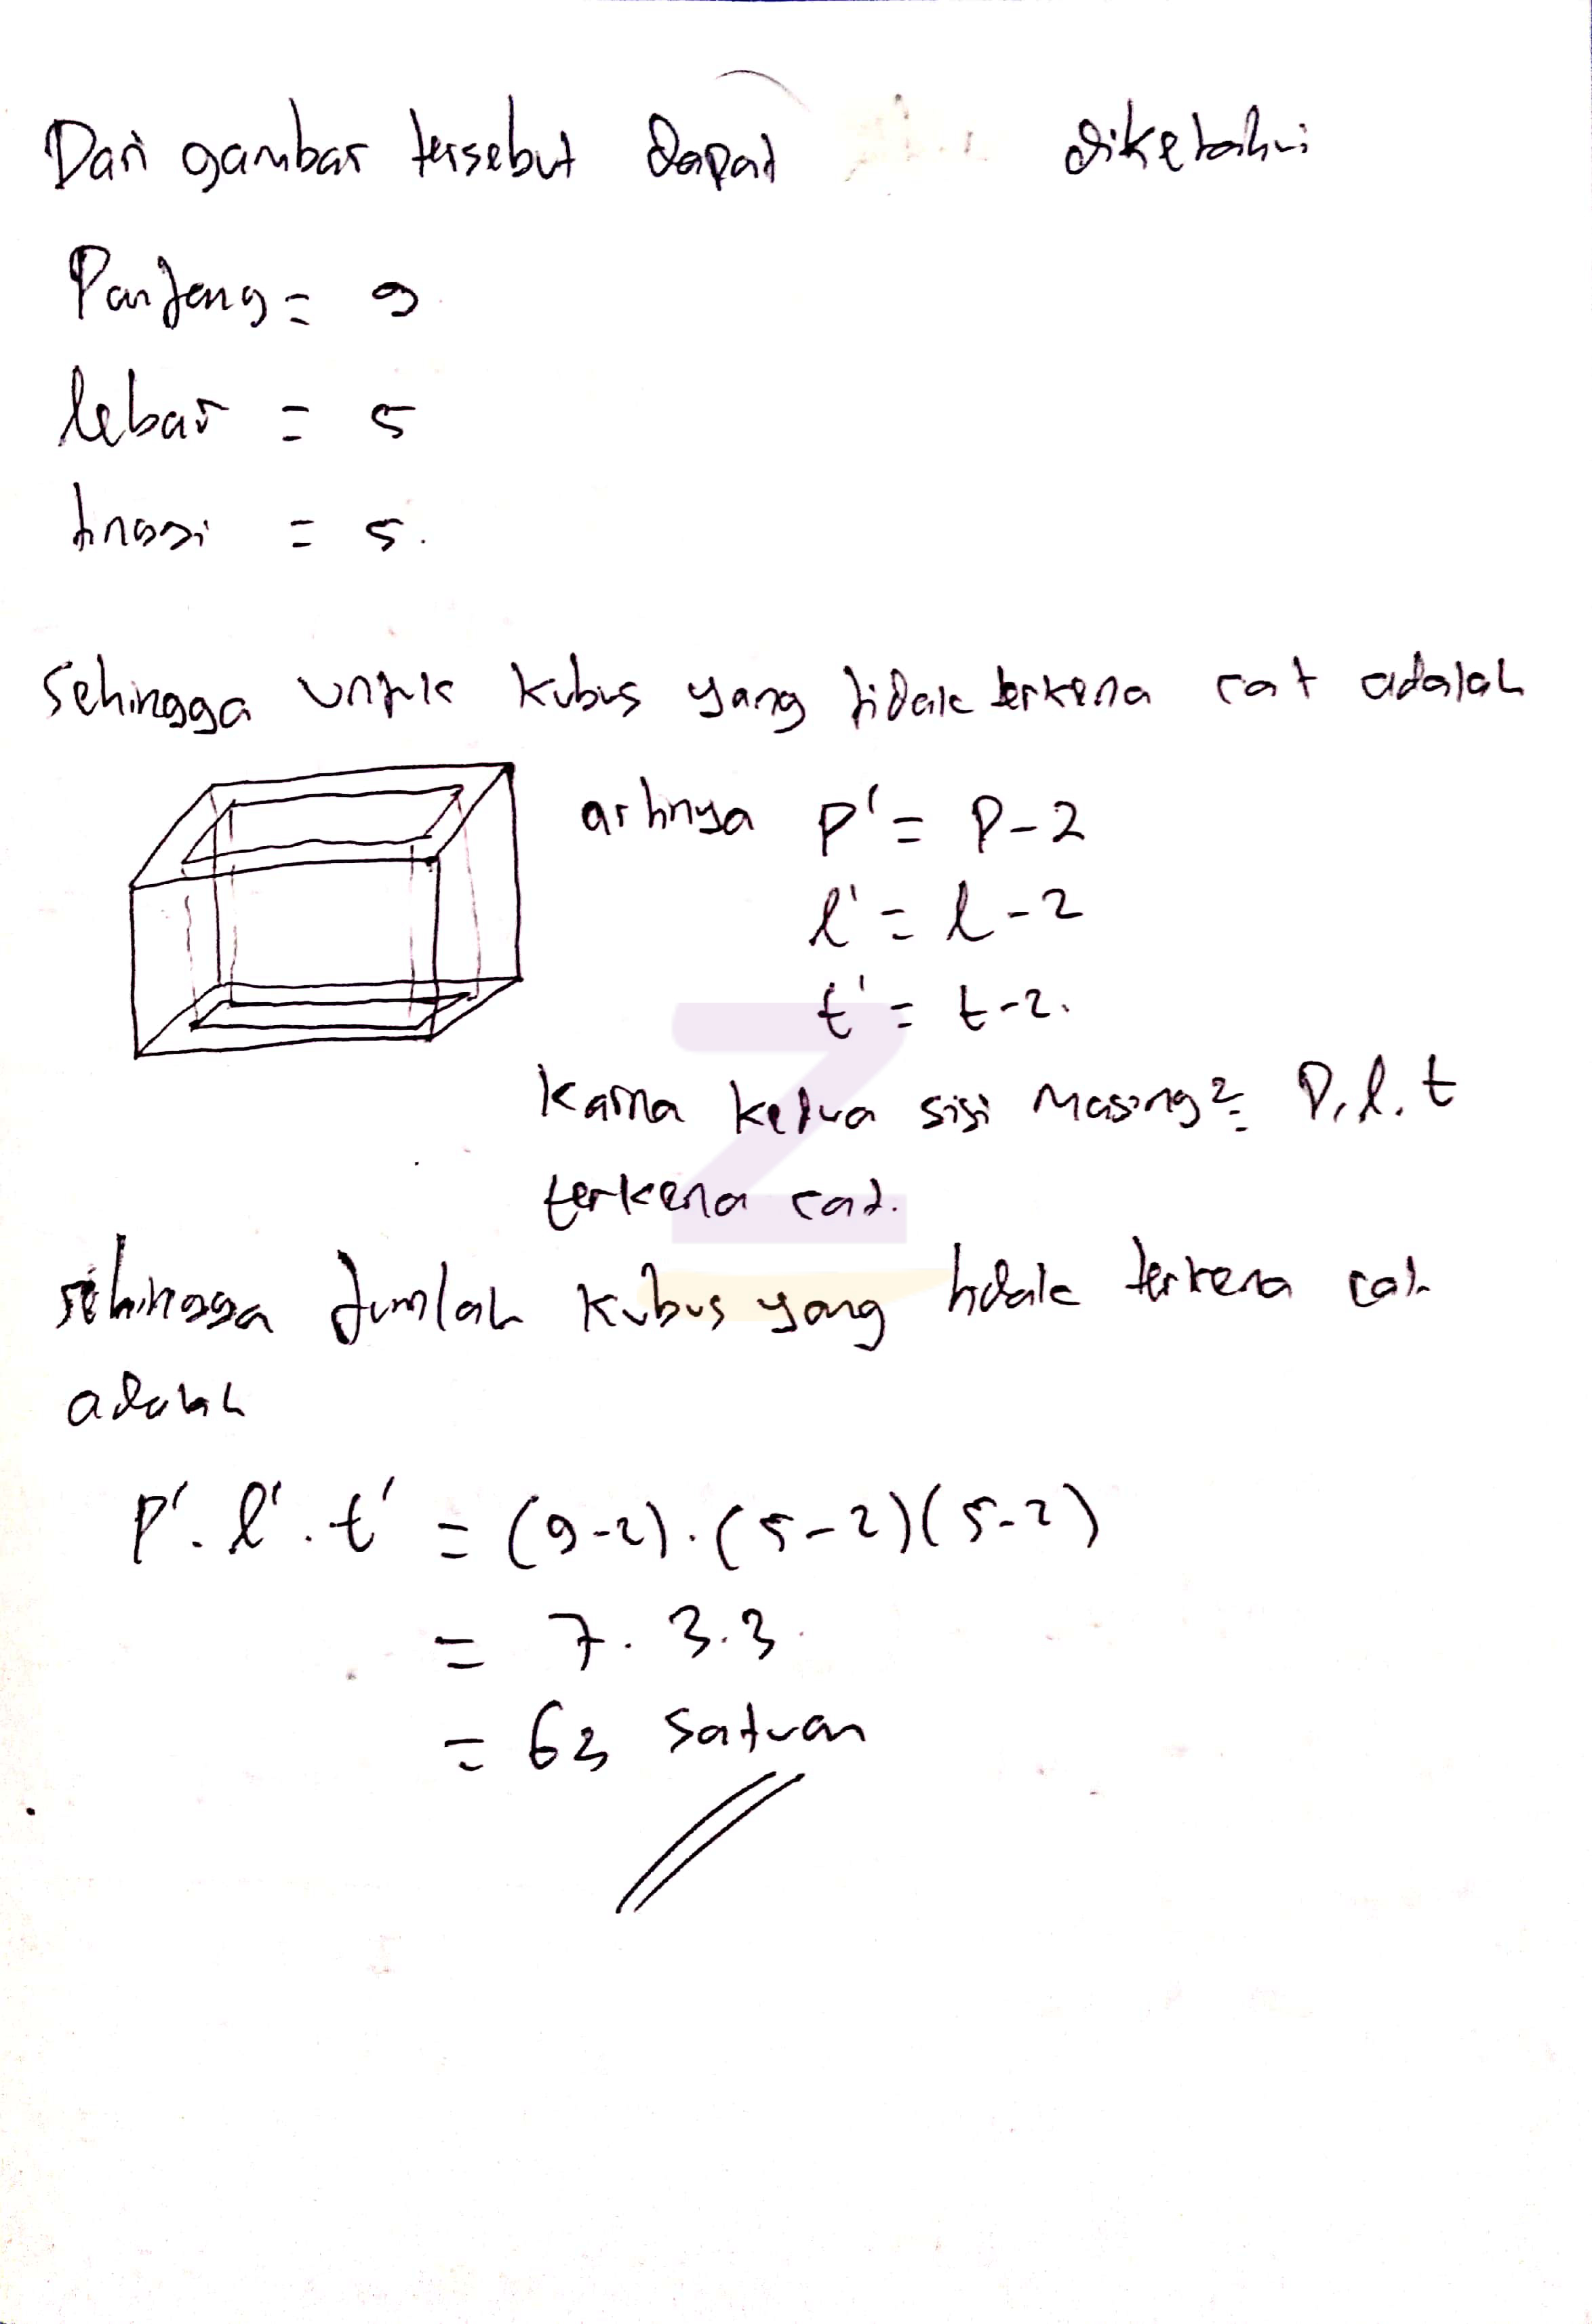 Dari gambar tersebut dapat diketahui
Panjang = 9
lebar = 5
tinggi = 5.
Sehingga untuk kubus yang tidak terkena cat adalah
artinya p' = p-2
l' = l-2
t' = t-2.
Karna kedua sisi masing2 = P, l, t
terkena cat.
sehingga Jumlah kubus yang tidak terkena cat
adalah
p'. l'. t' = (9-2).(5-2)(5-2)
= 7. 3. 3
= 63 satuan
Z